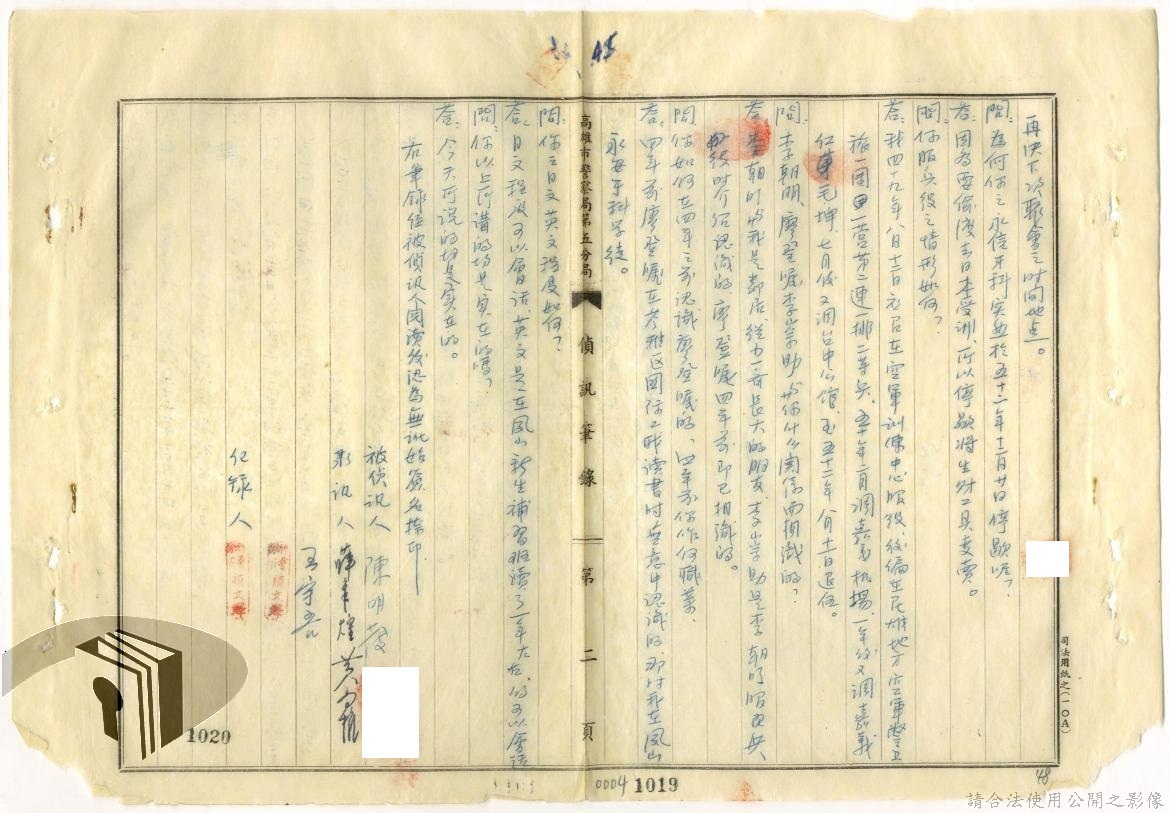 再决下次聚會之时间地点。
問：為何你之永信牙科实兴於五十二年十二月廿日停歇呢？
荅：因為要偷渡去日本受訓、所以停歇将生财工具变賣。
問：你服兵役之情形如何？
荅：我四十九年八月十二日应召在空軍訓練中心服役、後編在民雄地方空軍警卫
旅一团一營第二連一排二等兵、五十年二月調嘉義机場、一年後又調嘉義
红毛埤、七月後又調台中公館、至五十二年八月十一日退伍。
問：李朝明、廖登嘱、李崇助与你什么関係而相識的？
荅：李朝明与我是鄰居、從小一齊長大的朋友、李崇助是李朝明服充兵
役时介绍認識的廖登嘱四年前即已相識的。
問：你如何在四年之前認識廖登嘱的、四年前你作何職業、
荅：四年前廖登嘱在苓雅区国际二戏读書时無意中認識的、那时我在鳳山
永安牙科学徒。
問：你之日文英文程度如何？
荅：日文程度可以會话、英文是在鳳山新生補習班读了一年左右、仍可以會话
問：你以上所講的均是实在的嗎？
荅：今天所说的均是实在的。
右筆録经被偵讯人阅读後認為無訛始簽名捺印
被偵讯人 陳明發
承讯人
记録人
高雄市警察局第五分局
偵訊筆錄
第二頁
司法用紙之(一〇A)
48
0004 1019
1020
請合法使用公開之影像